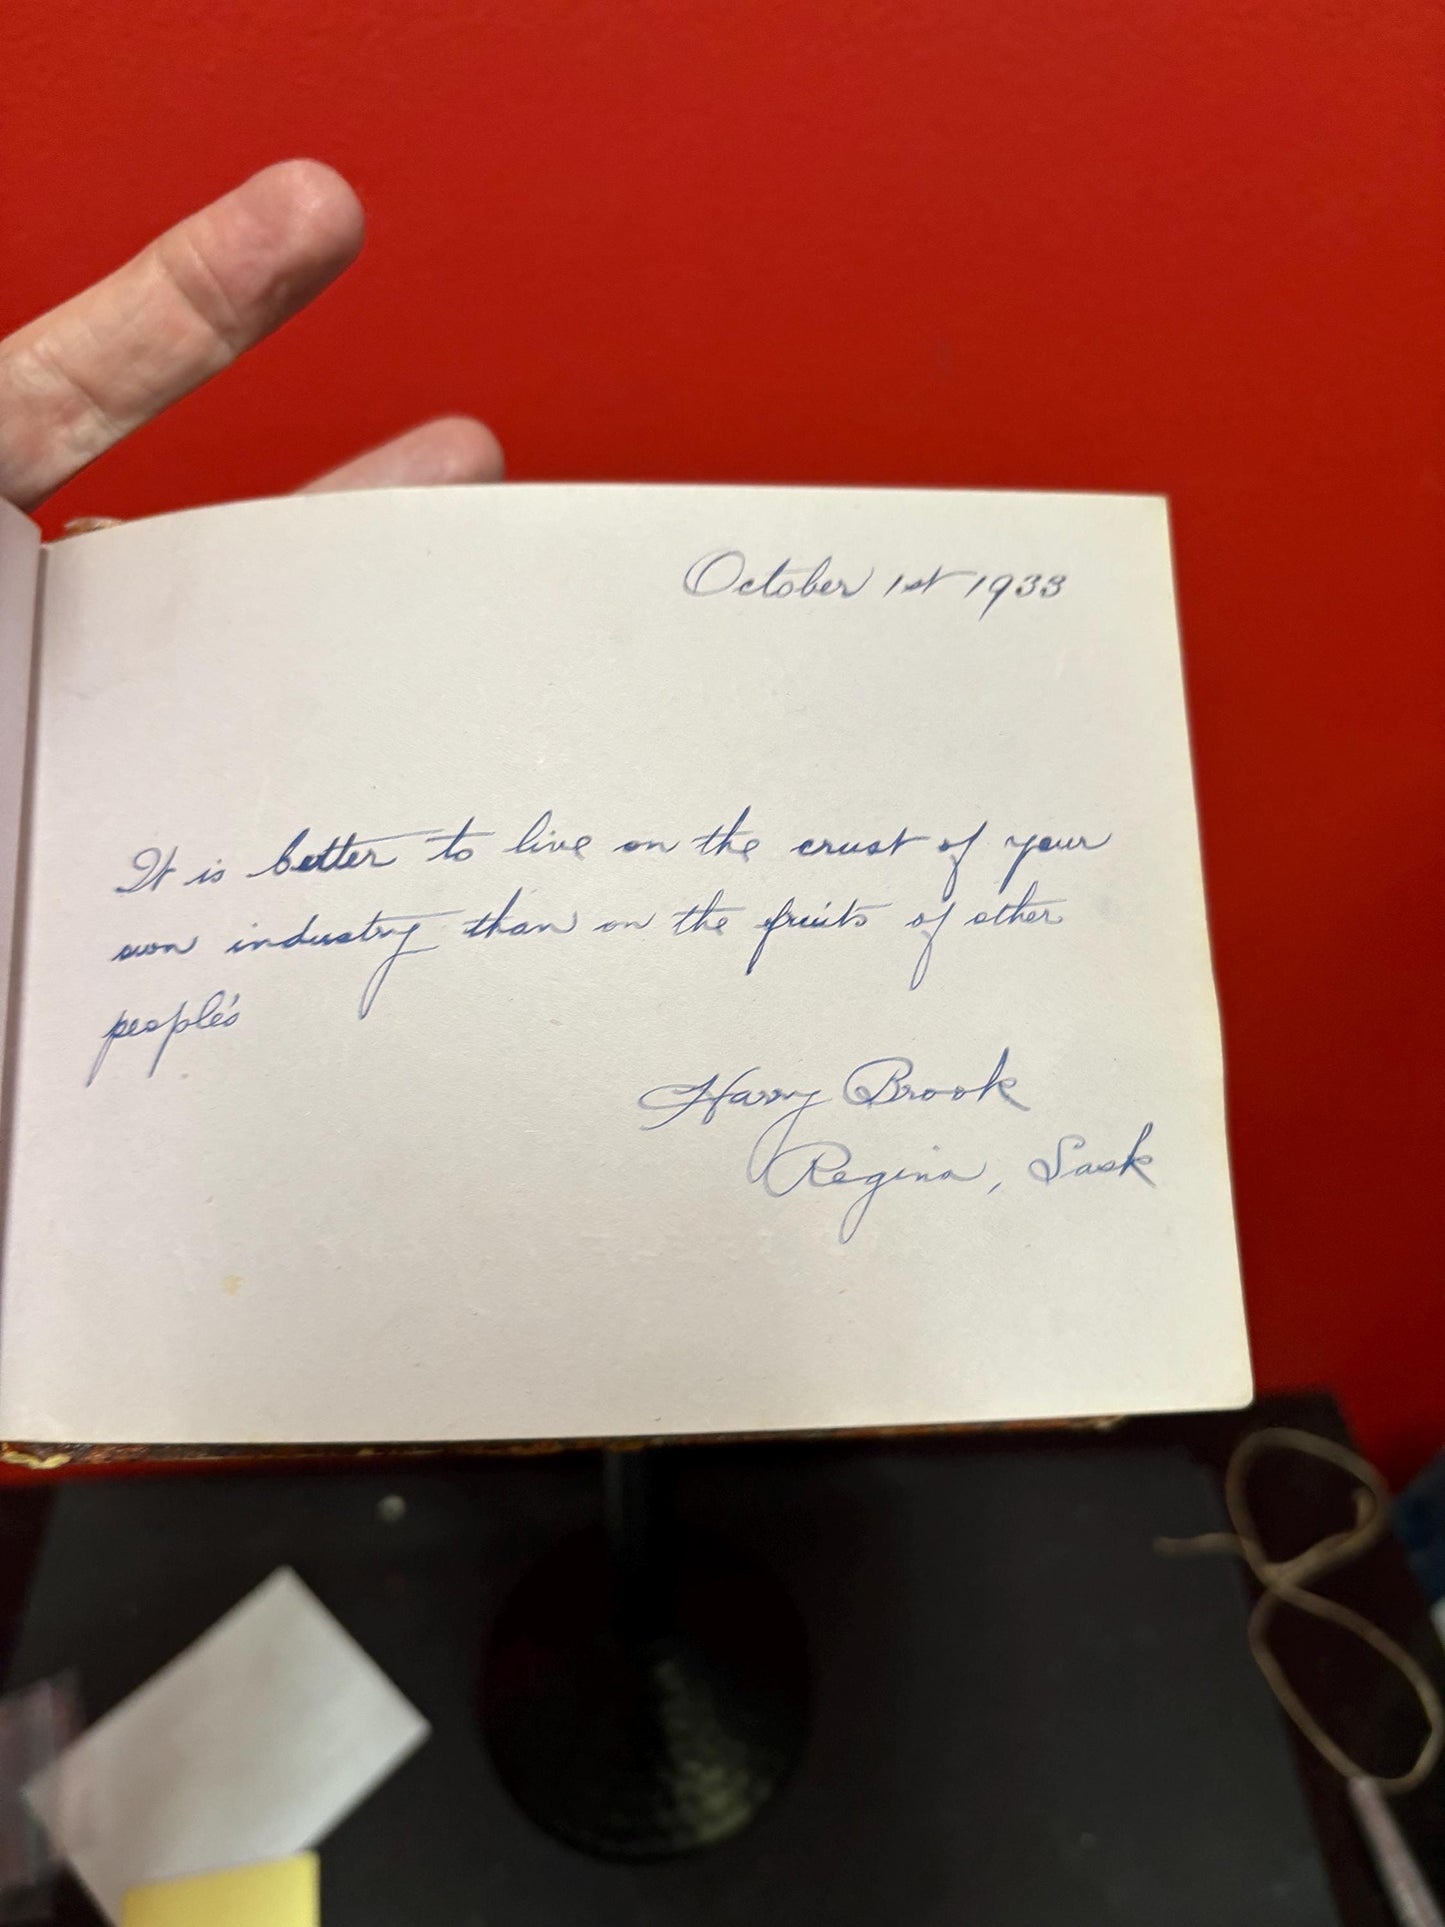 October 1st 1933
It is better to live on the crust of your
own industry than on the fruits of other
people's
Harry Brook
Regina, Sask